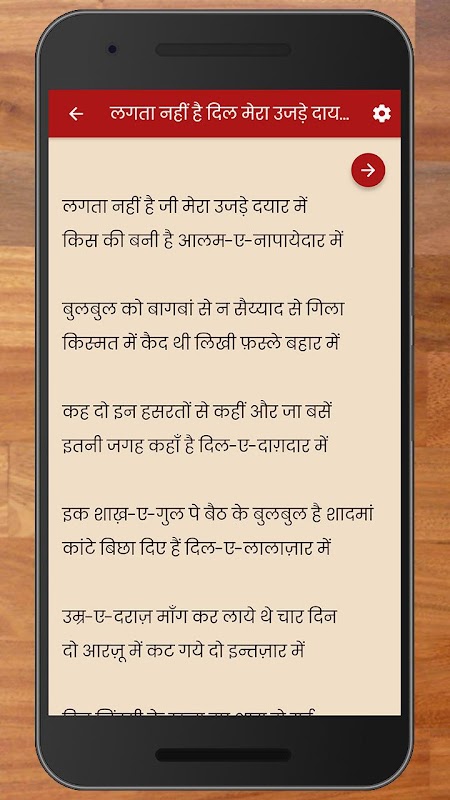 लगता नहीं है दिल मेरा उजड़े दाय...
लगता नहीं है जी मेरा उजड़े दयार में
किस की बनी है आलम-ए-नापायेदार में
बुलबुल को बागबां से न सैय्याद से गिला
किस्मत में कैद थी लिखी फ़स्ले बहार में
कह दो इन हसरतों से कहीं और जा बसें
इतनी जगह कहाँ है दिल-ए-दाग़दार में
इक शाख़-ए-गुल पे बैठ के बुलबुल है शादमां
कांटे बिछा दिए हैं दिल-ए-लालाज़ार में
उम्र-ए-दराज़ माँग कर लाये थे चार दिन
दो आरज़ू में कट गये दो इन्तज़ार में